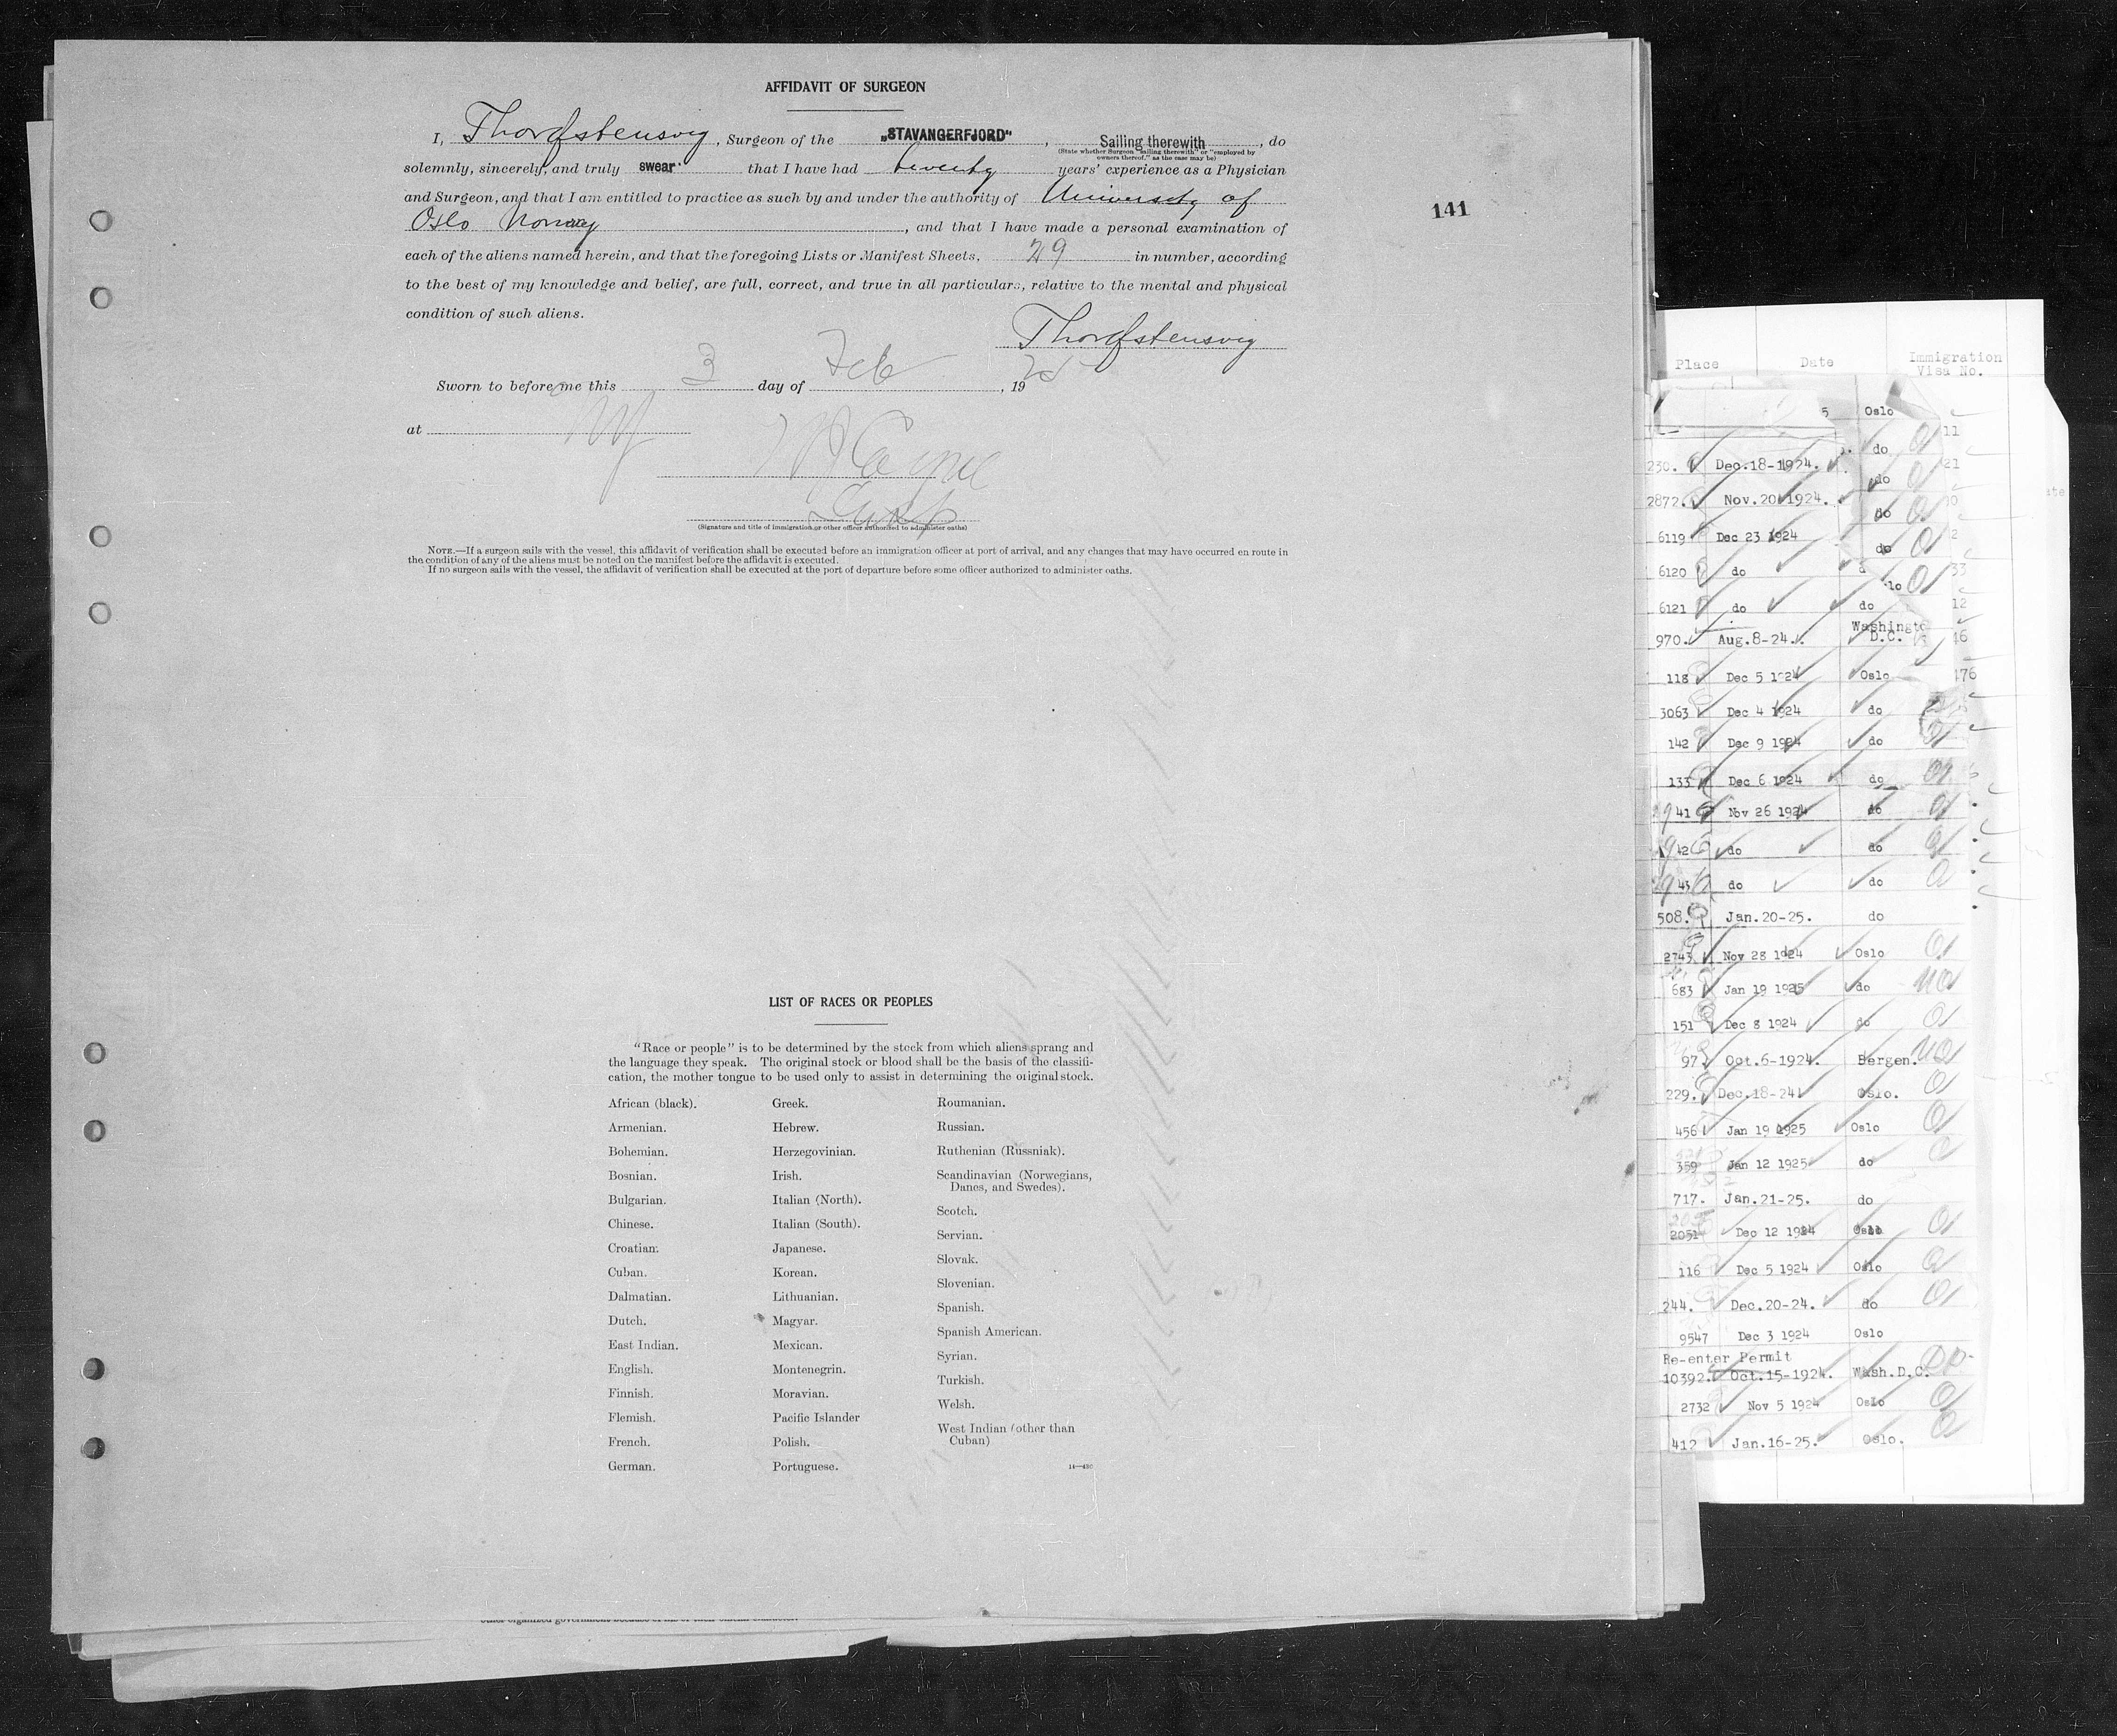 AFFIDAVIT OF SURGEON
I, Thorfstensvig, Surgeon of the „STAVANGERFJORD“, Sailing therewith, do
(State whether Surgeon "sailing therewith" or "employed by
owners thereof," as the case may be)
solemnly, sincerely, and truly swear that I have had twenty years' experience as a Physician
and Surgeon, and that I am entitled to practice as such by and under the authority of University of
Oslo Norway, and that I have made a personal examination of
each of the aliens named herein, and that the foregoing Lists or Manifest Sheets, 29 in number, according
to the best of my knowledge and belief, are full, correct, and true in all particulars, relative to the mental and physical
condition of such aliens.
Thorfstensvig
Sworn to before me this 3 day of Feb, 1925
at NY
(Signature and title of immigration or other officer authorized to administer oaths)
NOTE.—If a surgeon sails with the vessel, this affidavit of verification shall be executed before an immigration officer at port of arrival, and any changes that may have occurred en route in
the condition of any of the aliens must be noted on the manifest before the affidavit is executed.
If no surgeon sails with the vessel, the affidavit of verification shall be executed at the port of departure before some officer authorized to administer oaths.
141
LIST OF RACES OR PEOPLES
"Race or people" is to be determined by the stock from which aliens sprang and
the language they speak. The original stock or blood shall be the basis of the classifi-
cation, the mother tongue to be used only to assist in determining the original stock.
African (black).
Armenian.
Bohemian.
Bosnian.
Bulgarian.
Chinese.
Croatian.
Cuban.
Dalmatian.
Dutch.
East Indian.
English.
Finnish.
Flemish.
French.
German.
Greek.
Hebrew.
Herzegovinian.
Irish.
Italian (North).
Italian (South).
Japanese.
Korean.
Lithuanian.
Magyar.
Mexican.
Montenegrin.
Moravian.
Pacific Islander
Polish.
Portuguese.
Roumanian.
Russian.
Ruthenian (Russniak).
Scandinavian (Norwegians,
Danes, and Swedes).
Scotch.
Servian.
Slovak.
Slovenian.
Spanish.
Spanish American.
Syrian.
Turkish.
Welsh.
West Indian (other than
Cuban)
14—430
Place Date Immigration
Visa No.
5 Oslo
do 11
230. Dec.18-1924. do 21
2872. Nov.20 1924. do
6119 Dec 23 1924 do
6120 do 33
6121 do do 12
970. Aug.8-24. Washingto
D.C. 46
118 Dec 5 1924 Oslo 476
3063 Dec 4 1924 do
142 Dec 9 1924 do
133 Dec 6 1924 do
2941 Nov 26 1924 do
2942 do do
2943 do do
508. Jan.20-25. do
2743 Nov 28 1924 Oslo
683 Jan 19 1925 do
151 Dec 8 1924 do
97. Oct.6-1924. Bergen.
229. Dec.18-24 Oslo.
456 Jan 19 1925 Oslo
359 Jan 12 1925 do
717. Jan.21-25. do
2051 Dec 12 1924 Oslo
116 Dec 5 1924 Oslo
244. Dec.20-24. do
9547 Dec 3 1924 Oslo
Re-enter Permit
10392. Oct.15-1924. Wash.D.C.
2732 Nov 5 1924 Oslo
412 Jan.16-25. Oslo.